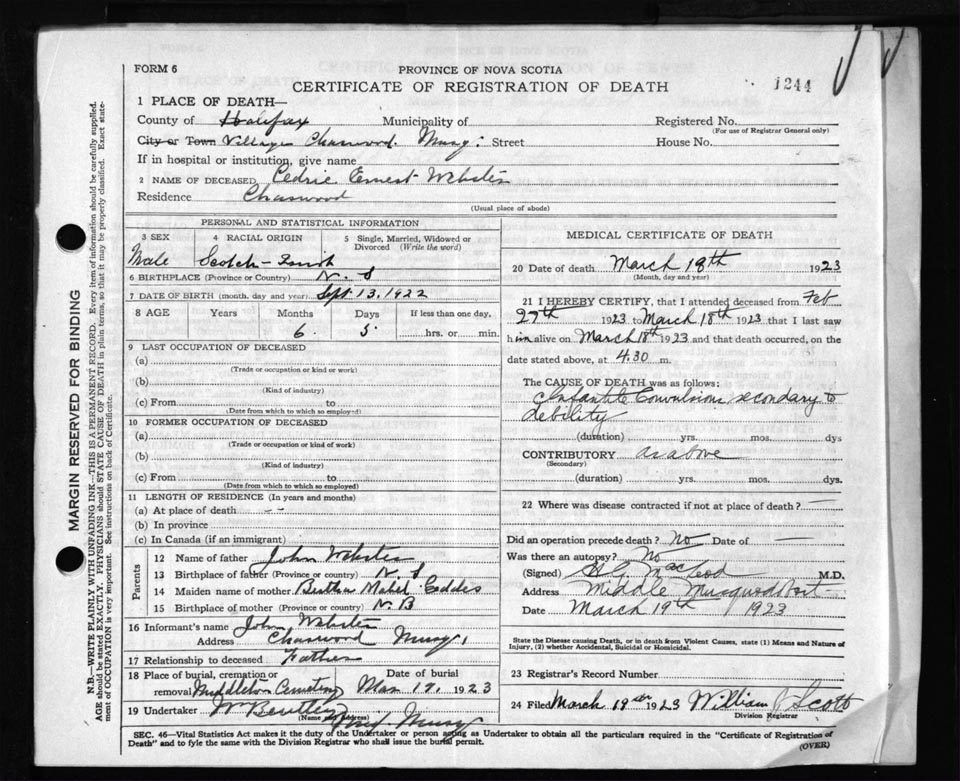 FORM 6
PROVINCE OF NOVA SCOTIA
CERTIFICATE OF REGISTRATION OF DEATH
1244
1 PLACE OF DEATH—
County of Halifax Municipality of Registered No.
(For use of Registrar General only)
City or Town Village Chaswood. Musq: Street House No.
If in hospital or institution, give name
2 NAME OF DECEASED Cedric Ernest Webster
Residence Chaswood
(Usual place of abode)
PERSONAL AND STATISTICAL INFORMATION
3 SEX 4 RACIAL ORIGIN 5 Single, Married, Widowed or Divorced (Write the word)
Male Scotch-Irish
6 BIRTHPLACE (Province or Country) N. S
7 DATE OF BIRTH (month, day and year) Sept 13, 1922
8 AGE Years Months Days If less than one day,
6 5 hrs. or min.
9 LAST OCCUPATION OF DECEASED
(a)
(Trade or occupation or kind or work)
(b)
(Kind of industry)
(c) From to
(Date from which to which so employed)
10 FORMER OCCUPATION OF DECEASED
(a)
(Trade or occupation or kind of work)
(b)
(Kind of industry)
(c) From to
(Date from which to which so employed)
11 LENGTH OF RESIDENCE (In years and months)
(a) At place of death - -
(b) In province
(c) In Canada (if an immigrant)
Parents
12 Name of father John Webster
13 Birthplace of father (Province or country) N S
14 Maiden name of mother Bertha Mabel Geddes
15 Birthplace of mother (Province or country) N. B
16 Informant's name John Webster
Address Chaswood Musq,
17 Relationship to deceased Father
18 Place of burial, cremation or Date of burial
removal Middleton Cemetery Mar 19, 1923
19 Undertaker Wm Bentley
(Name and address) Mid, Musq
MEDICAL CERTIFICATE OF DEATH
20 Date of death March 18th 1923
(Month, day and year)
21 I HEREBY CERTIFY, that I attended deceased from Feb
27th 1923 to March 18th 1923 that I last saw
him alive on March 18th 1923 and that death occurred, on the
date stated above, at 4.30 m.
The CAUSE OF DEATH was as follows:
Infantile Convulsions secondary to
debility
(duration) yrs. mos. dys
CONTRIBUTORY as above
(Secondary)
(duration) yrs. mos. dys.
22 Where was disease contracted if not at place of death? —
Did an operation precede death? No Date of —
Was there an autopsy? No
(Signed) MacLeod M.D.
Address Middle Musquodoboit
Date March 19th 1923
State the Disease causing Death, or in death from Violent Causes, state (1) Means and Nature of
Injury, (2) whether Accidental, Suicidal or Homicidal.
23 Registrar's Record Number
24 Filed March 19th 1923 William J Scott
Division Registrar
SEC. 46—Vital Statistics Act makes it the duty of the Undertaker or person acting as Undertaker to obtain all the particulars required in the "Certificate of Registration of
Death" and to fyle the same with the Division Registrar who shall issue the burial permit.
(OVER)
MARGIN RESERVED FOR BINDING
N.B.—WRITE PLAINLY WITH UNFADING INK—THIS IS A PERMANENT RECORD. Every item of information should be carefully supplied.
AGE should be stated EXACTLY. PHYSICIANS should STATE CAUSE OF DEATH in plain terms, so that it may be properly classified. Exact state-
ment of OCCUPATION is very important. See instructions on back of Certificate.